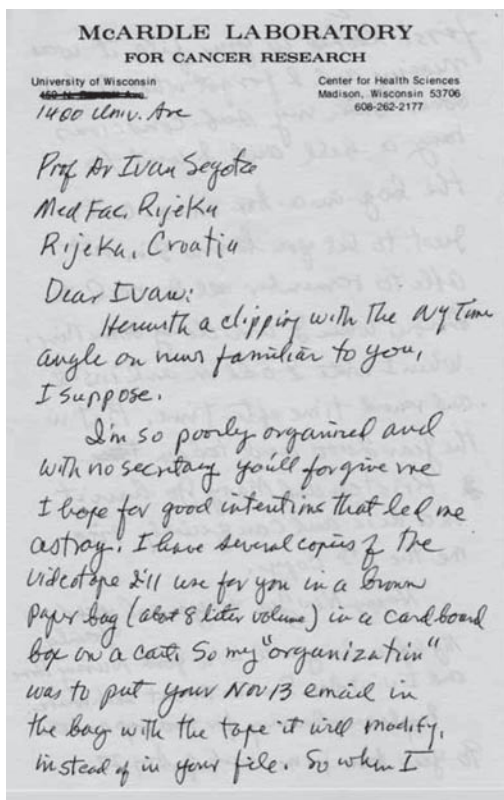 McARDLE LABORATORY
FOR CANCER RESEARCH
University of Wisconsin
Center for Health Sciences
Madison, Wisconsin 53706
608-262-2177
1400 Univ. Ave
Prof Dr Ivan Segota
Med Fac, Rijeka
Rijeka, Croatia
Dear Ivan:
Herewith a clipping with the NY Time
angle on news familiar to you,
I suppose.
I'm so poorly organized and
with no secretary you'll forgive me
I hope for good intentions that led me
astray. I have several copies of the
videotape I'll use for you in a brown
paper bag (abot 8 liter volume) in a cardboard
box on a cart. So my "organization"
was to put your Nov 13 email in
the bag with the tape it will modify,
instead of in your file. So when I